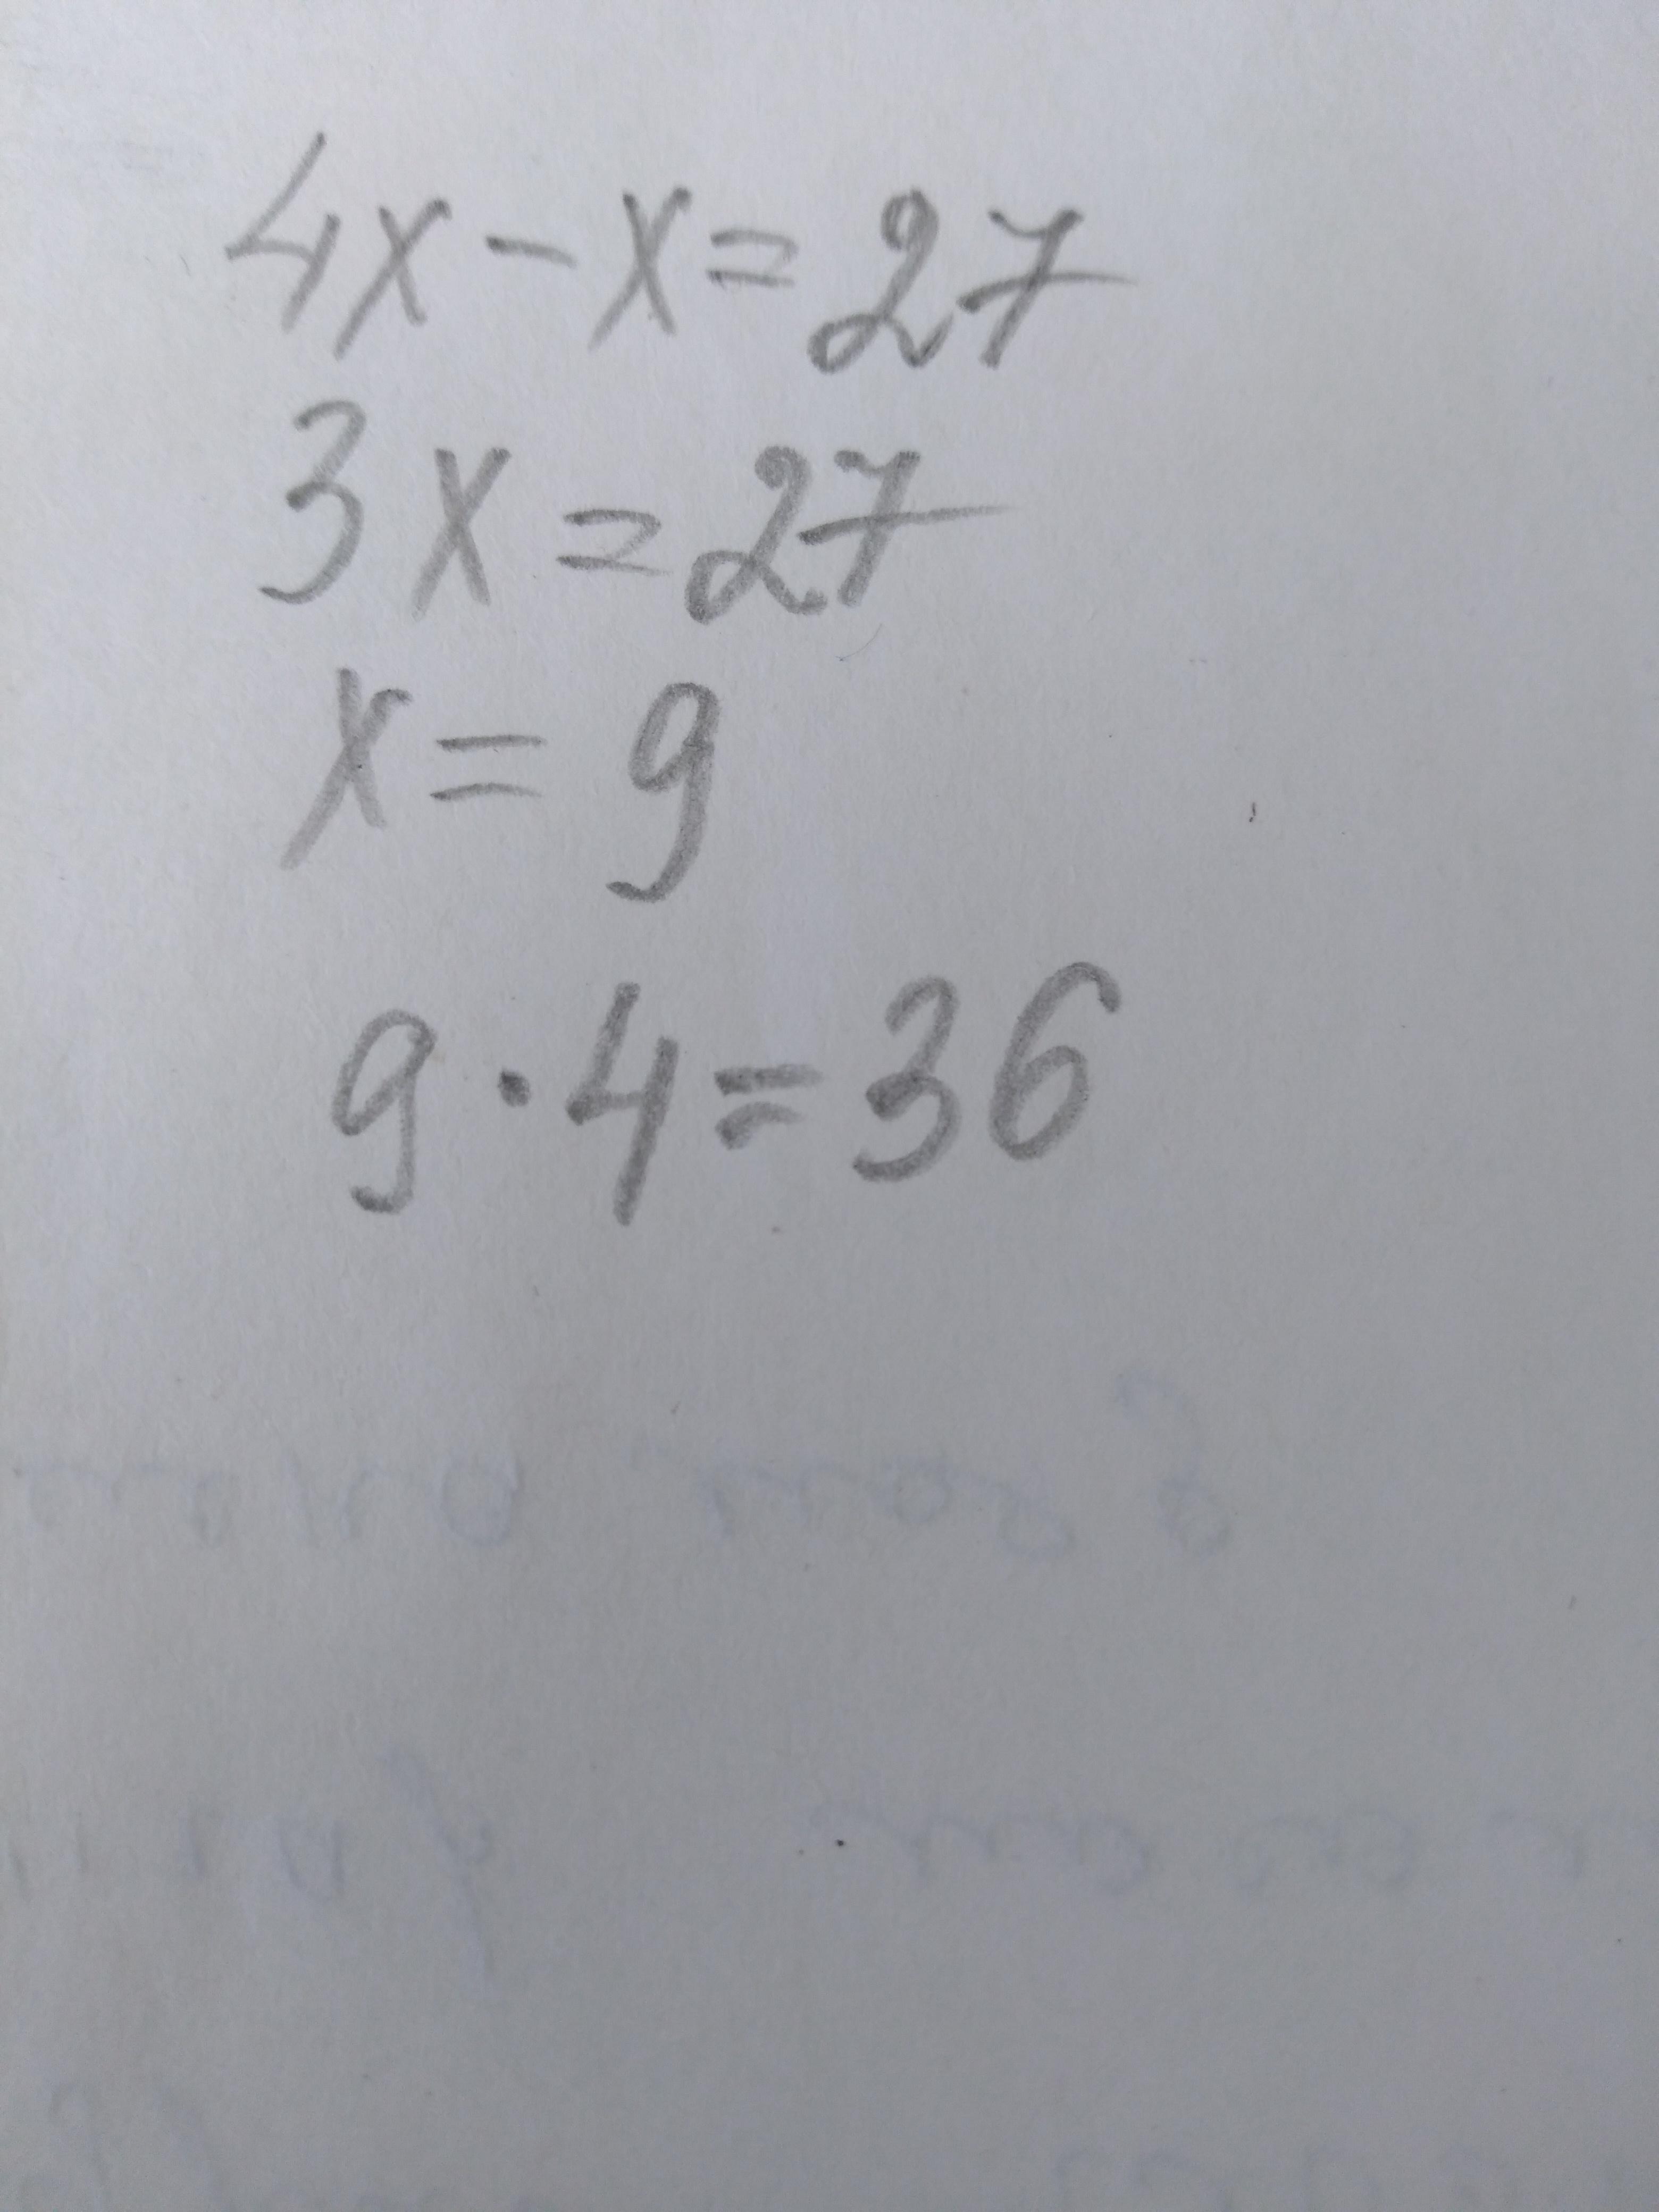 4x - x = 27
3x = 27
x = 9
9 · 4 = 36